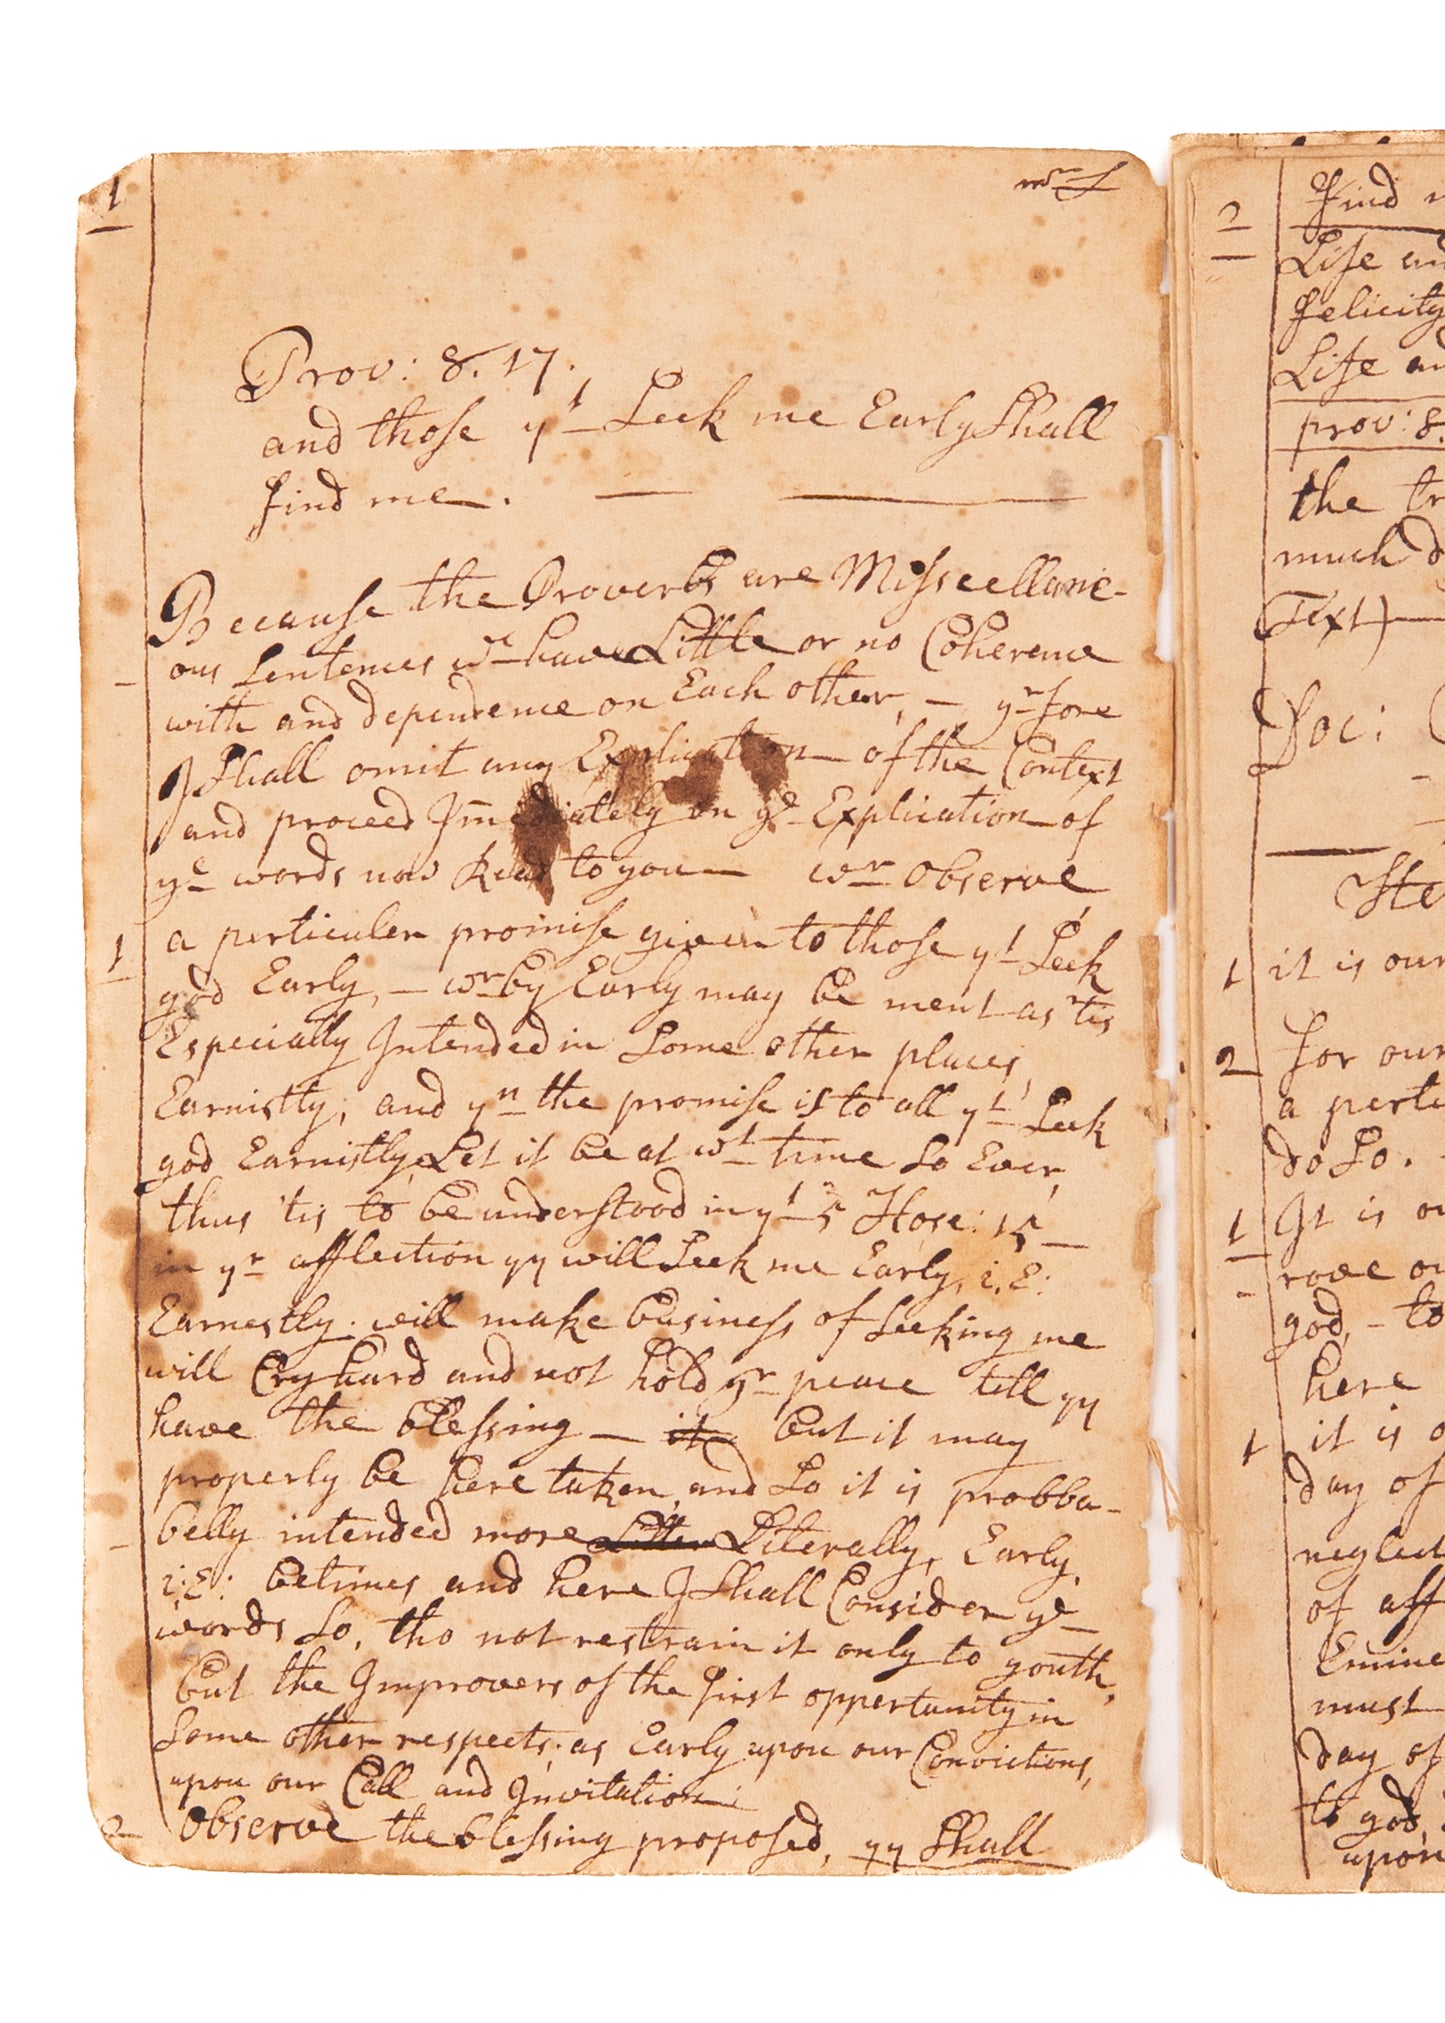 1
Prov: 8. 17.
and those yt Seek me Early Shall
find me.
Because the Proverbs are Misscellanie-
ous Sentences wc have Little or no Coherence
with and dependence on Each other, — yrfore
I Shall omit any Explication of the Context
and proceed Im̄ediately on ye Explication of
ye words now Read to you — wr observe
1 a perticuler promise given to those yt Seek
god Early, — wrby Early may be ment as 'tis
Especially Intended in Some other places,
Earnistly, and yn the promise is to all yt Seek
god Earnistly, Let it be at wt time So Ever,
thus 'tis to be understood in yt 5 Hose: 15 —
in yr afflection yy will Seek me Early, i.E:
Earnestly. will make business of Seeking me
will Cry hard and not hold yr peace till yy
have the blessing — it but it may
properly be here taken, and So it is probba-
belly intended more Litter Literally, Early,
i:E: betimes and here I Shall Consider ye
words So, tho not restrain it only to youth,
but the Improvers of the first oppertunity in
Some other respects; as Early upon our Convictions,
upon our Call and Invitation:
2 observe the blessing proposed, yy Shall
2
find
Life
felicity
Life
prov: 8.
the
much
Text) —
Doc:
1 it is our
2 for our
a
do So.
1 It is
god, — to
here
1 it is
day of
neglect
of
must
day of
to god,
upon